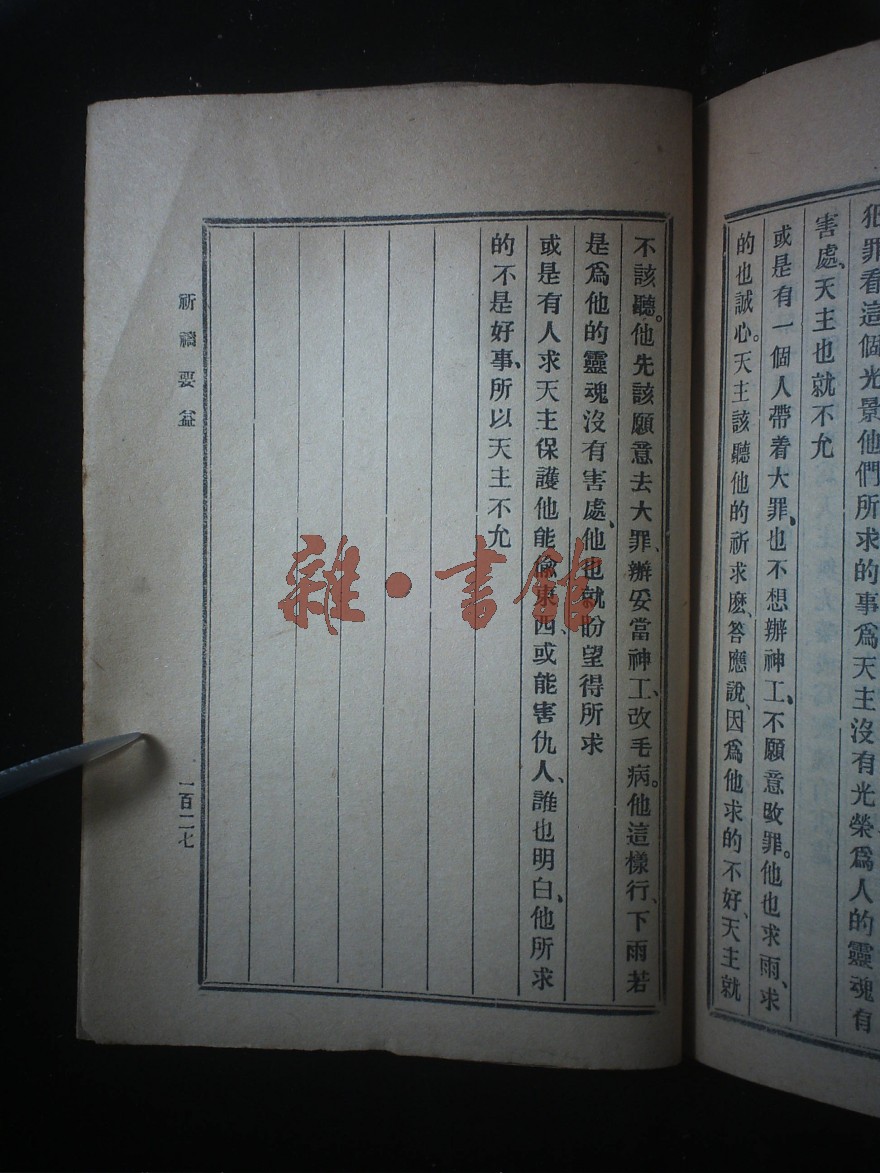 犯罪看這個光景他們所求的事爲天主沒有光榮爲人的靈魂有
害處、天主也就不允
或是有一個人帶着大罪、也不想辦神工、不願意改罪。他也求雨、求
的也誠心。天主該聽他的祈求麽、答應說、因爲他求的不好、天主就
不該聽。他先該願意去大罪、辦妥當神工、改毛病。他這樣行、下雨若
是爲他的靈魂沒有害處、他也就盼望得所求
或是有人求天主保護他能偸東西、或能害仇人、誰也明白、他所求
的不是好事、所以天主不允
祈禱要益
一百二七
雜·書館